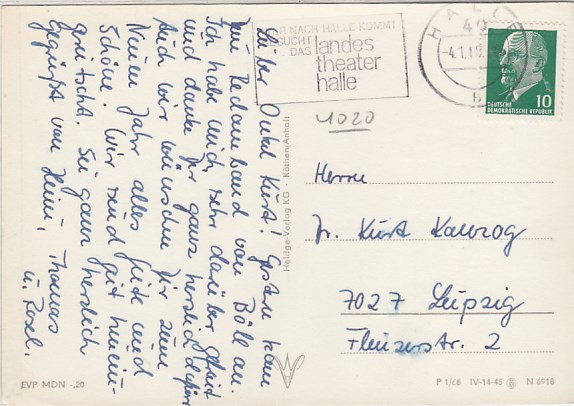 Lieber Onkel Kurt! Gestern kam
Dein Redamsband von Böll an.
Ich habe mich sehr darüber gefreut
und danke Dir ganz herzlich dafür.
Auch wir wünschen Dir zum
Neuen Jahr alles Gute und
Schöne. Wir sind gut hinein-
gerutscht. Sei ganz herzlich
gegrüßt von Heini, Thomas
u. Rosel.
WER NACH HALLE KOMMT
BESUCHT
DAS landes
theater
halle
HALLE
40
-4.1.69
DEUTSCHE
DEMOKRATISCHE REPUBLIK
10
4020
Herrn
Dr. Kurt Kawzog
7027 Leipzig
Str. 2
Heldge-Verlag KG · Köthen/Anhalt
EVP MDN -,20
P 1/66 IV-14-45 N 6918